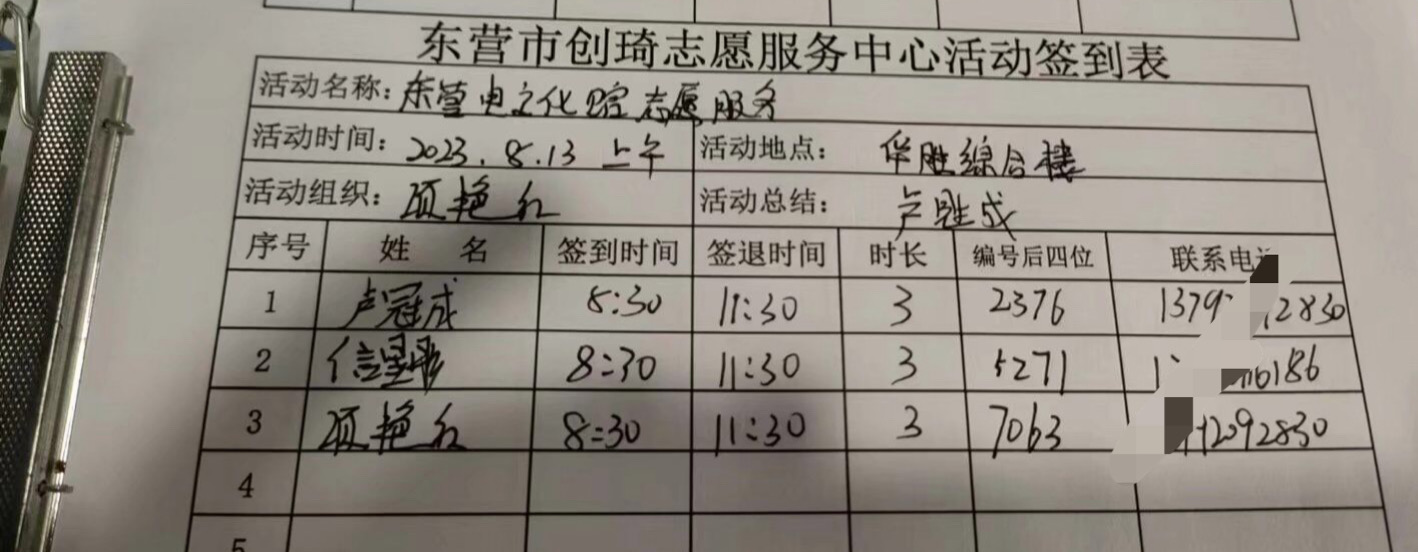 东营市创琦志愿服务中心活动签到表
活动名称：东营电文化馆志愿服务
活动时间：2023.8.13 上午 活动地点：华胜综合楼
活动组织：项艳红 活动总结：卢冠成
序号 姓 名 签到时间 签退时间 时长 编号后四位 联系电
1 卢冠成 8:30 11:30 3 2376 1379 2830
2 信星彤 8:30 11:30 3 5271 6186
3 项艳红 8:30 11:30 3 7063 2092830
4
5